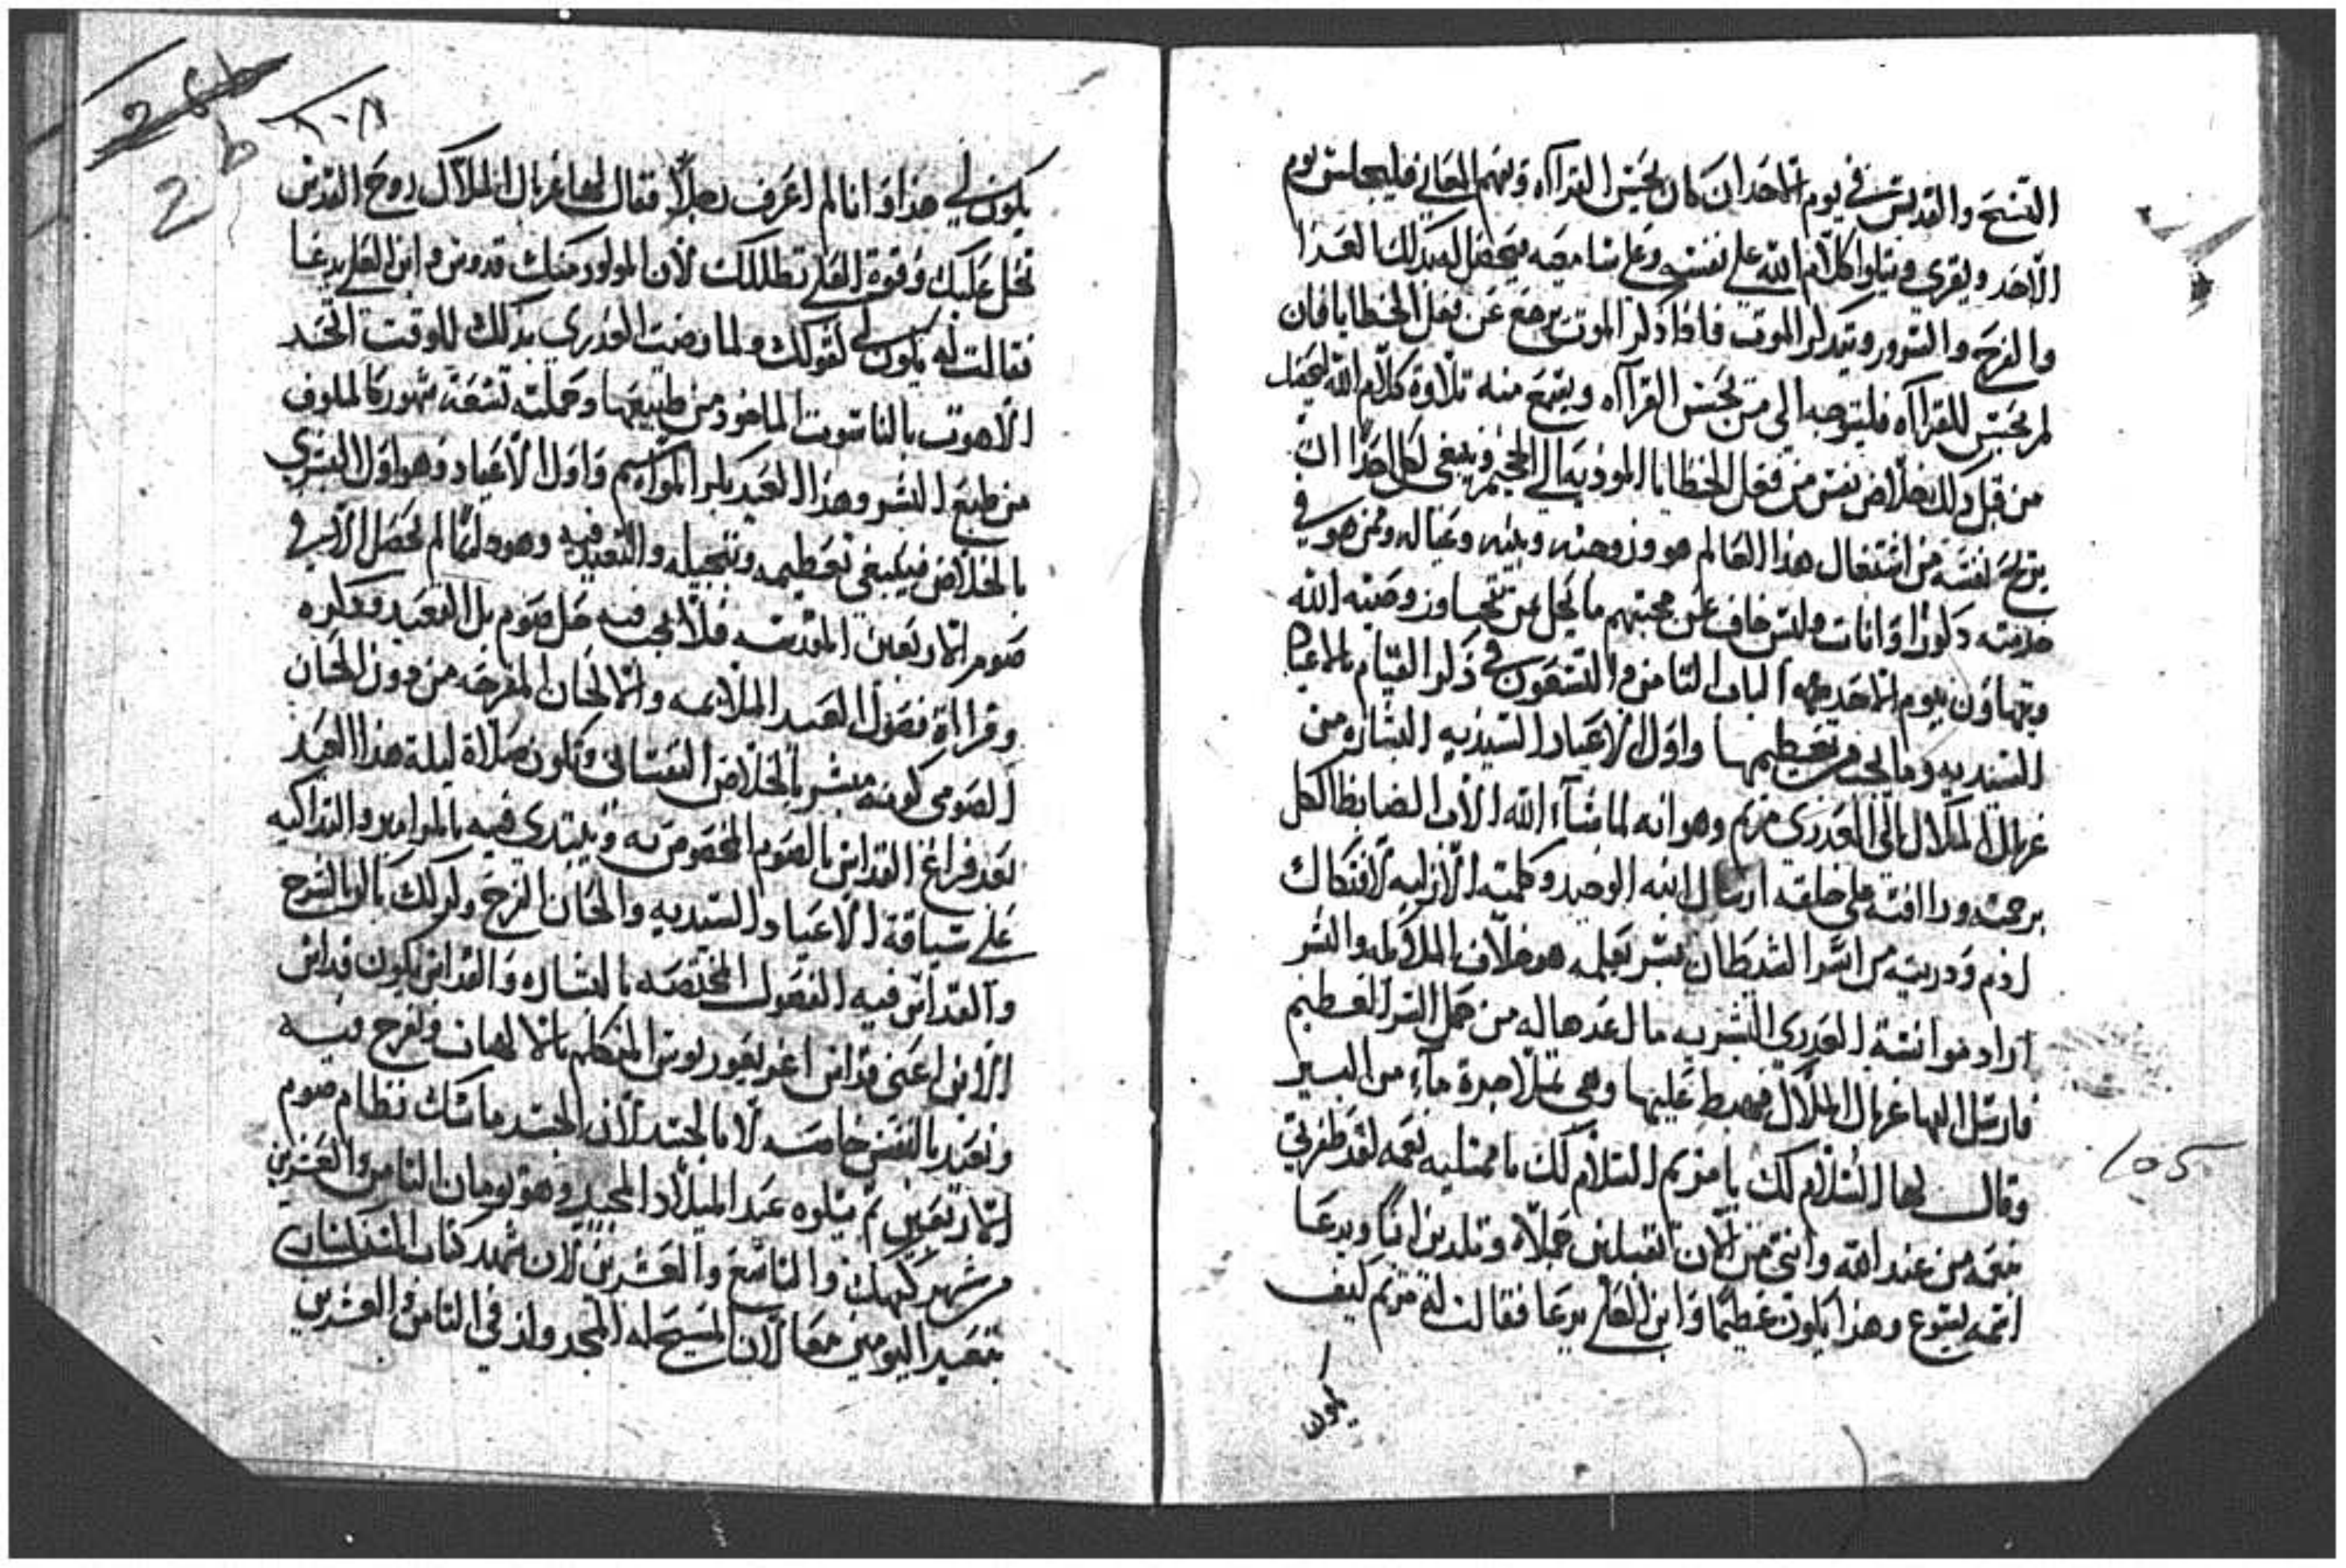 التسبيح والتقديس في يوم الاحد ان كان يحسن القرآاه ويفهم المعاني فليجلس يوم
الاحد ويقري ويتلوا كلام الله على نفسه وعلى سامعيه فيحصل له بذلك العزا
والفرح والسرور ويتدكر الموت فاذا ذكر الموت يرجع عن فعل الخطايا فان
لم يحسن للقرآاه فليتوجه الى من يحسن القرآاه ويسمع منه تلاوة كلام الله ليحصل
من قبل ذلك خلاص نفسه من فعل الخطايا الموديه الى الجحيم وينبغي لكل احد ان
يريح نفسه من اشتغال هذا العالم هو وزوجته وبنيه وعياله ومن هو في
خدمته دكورا او اناث وليس خاف عن محبتهم ما يحل عن تجاوز وصية الله
وتهاون بيوم الاحد الباب الثامن والتسعون في ذكر القيام بالاعياد
السيديه وما يجب من تعظيمها واول الاعياد السيديه البشاره من
غبريال الملاك الى العدري مريم وهو انه لما شآء الله الاب الضابط الكل
برحمته ورافته على خلقته ارسال ابنه الوحيد وكلمته الازليه لافتكاك
ادم ودريته من اسر الشيطان بسر يعلمه هو خلاف الملايكه والبشر
اراد موانسة العدري البشريه ما اعدها له من حمل السر العظيم
فارسل اليها غبريال الملاك فهبط عليها وهي تملا جرة مآء من البير
وقال لها السلام لك يا مريم السلام لك يا ممتليه نعمه لقد ظفرتي
نعمه من عند الله وانتي من الان تقبلين حبلاً وتلدين ابنا ويدعا
اسمه يسوع وهذا يكون عظيما وابن العلي يدعا فقالت له مريم كيف
يكون
105
يكون لي هذا وانا لم اعرف رجلاً فقال لها غبريال الملاك روح القدس
تحل عليك وقوة العلي تظللك لان المولود منك قدوس وابن العلي يدعا
فقالت له يكون لي كقولك ولما رضت العدري بذلك للوقت اتحد
اللاهوت بالناسوت الماخود من طبيعتها وحملته تسعة شهور كالمالوف
من طبع البشر وهذا العيد بكر المواسم واول الاعياد وهو اول البشري
بالخلاص فينبغي تعظيمه وتبجيله والتعييد فيه وهو دايما لم يحصل الا في
صوم الاربعين المقدسه فلا يجب فيه حل صوم بل التعييد وتذكره
وقرااة فصول العيد الملايمه والالحان المفرحه من دون الحان
الصومي كونه مبشر بالخلاص النفساني وتكون صلاة ليلة هذا العيد
بعد فراغ القداس بالصوم المخصوص به ويبتدي فيه بالمزامير والتداكيه
على سياقة الاعياد السيديه والحان الفرح وكدلك باكر بالفرح
والقداس فيه الفصول المختصه بالبشاره والقداس يكون قداس
الابن اعني قداس اغريغوريوس المتكلم بالالهيات ونفرح فيه
ونعيد بالنفس خاصه لا بالجسد لان الجسد ماسك نظام صوم
الاربعين ثم يتلوه عيد الميلاد المجيد وهو يومان الثامن والعشرين
من شهر كيهك والتاسع والعشرين لان شهد كتاب السنكساري
بتعييد اليومين معا لان المسيح له المجد ولد في الثامن والعشرين
26b
2b